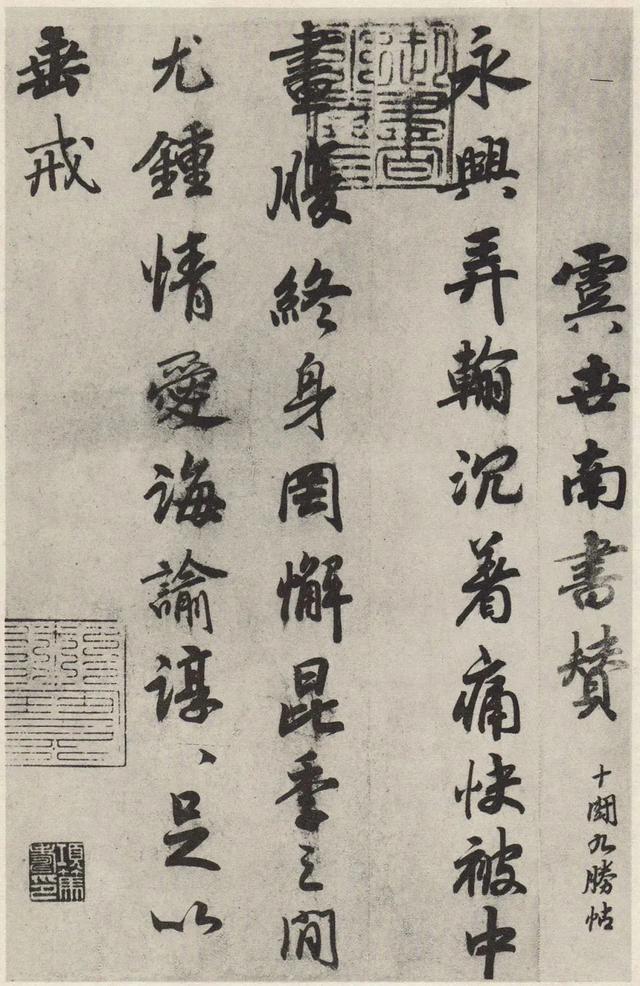 虞世南書贊
十鬪九勝帖
永興弄翰沉着痛快被中
畫腹終身罔懈昆季之間
尤鍾情愛誨諭諄、足以
垂戒
御書